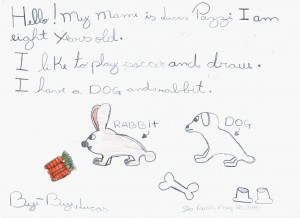 Hello! My Name is Lucas Pazzi I am
eight years old.
I like to play soccer and draw.
I have a DOG and rabbit.
RABBit
DOG
Bye-Bye, Lucas
São Paulo,